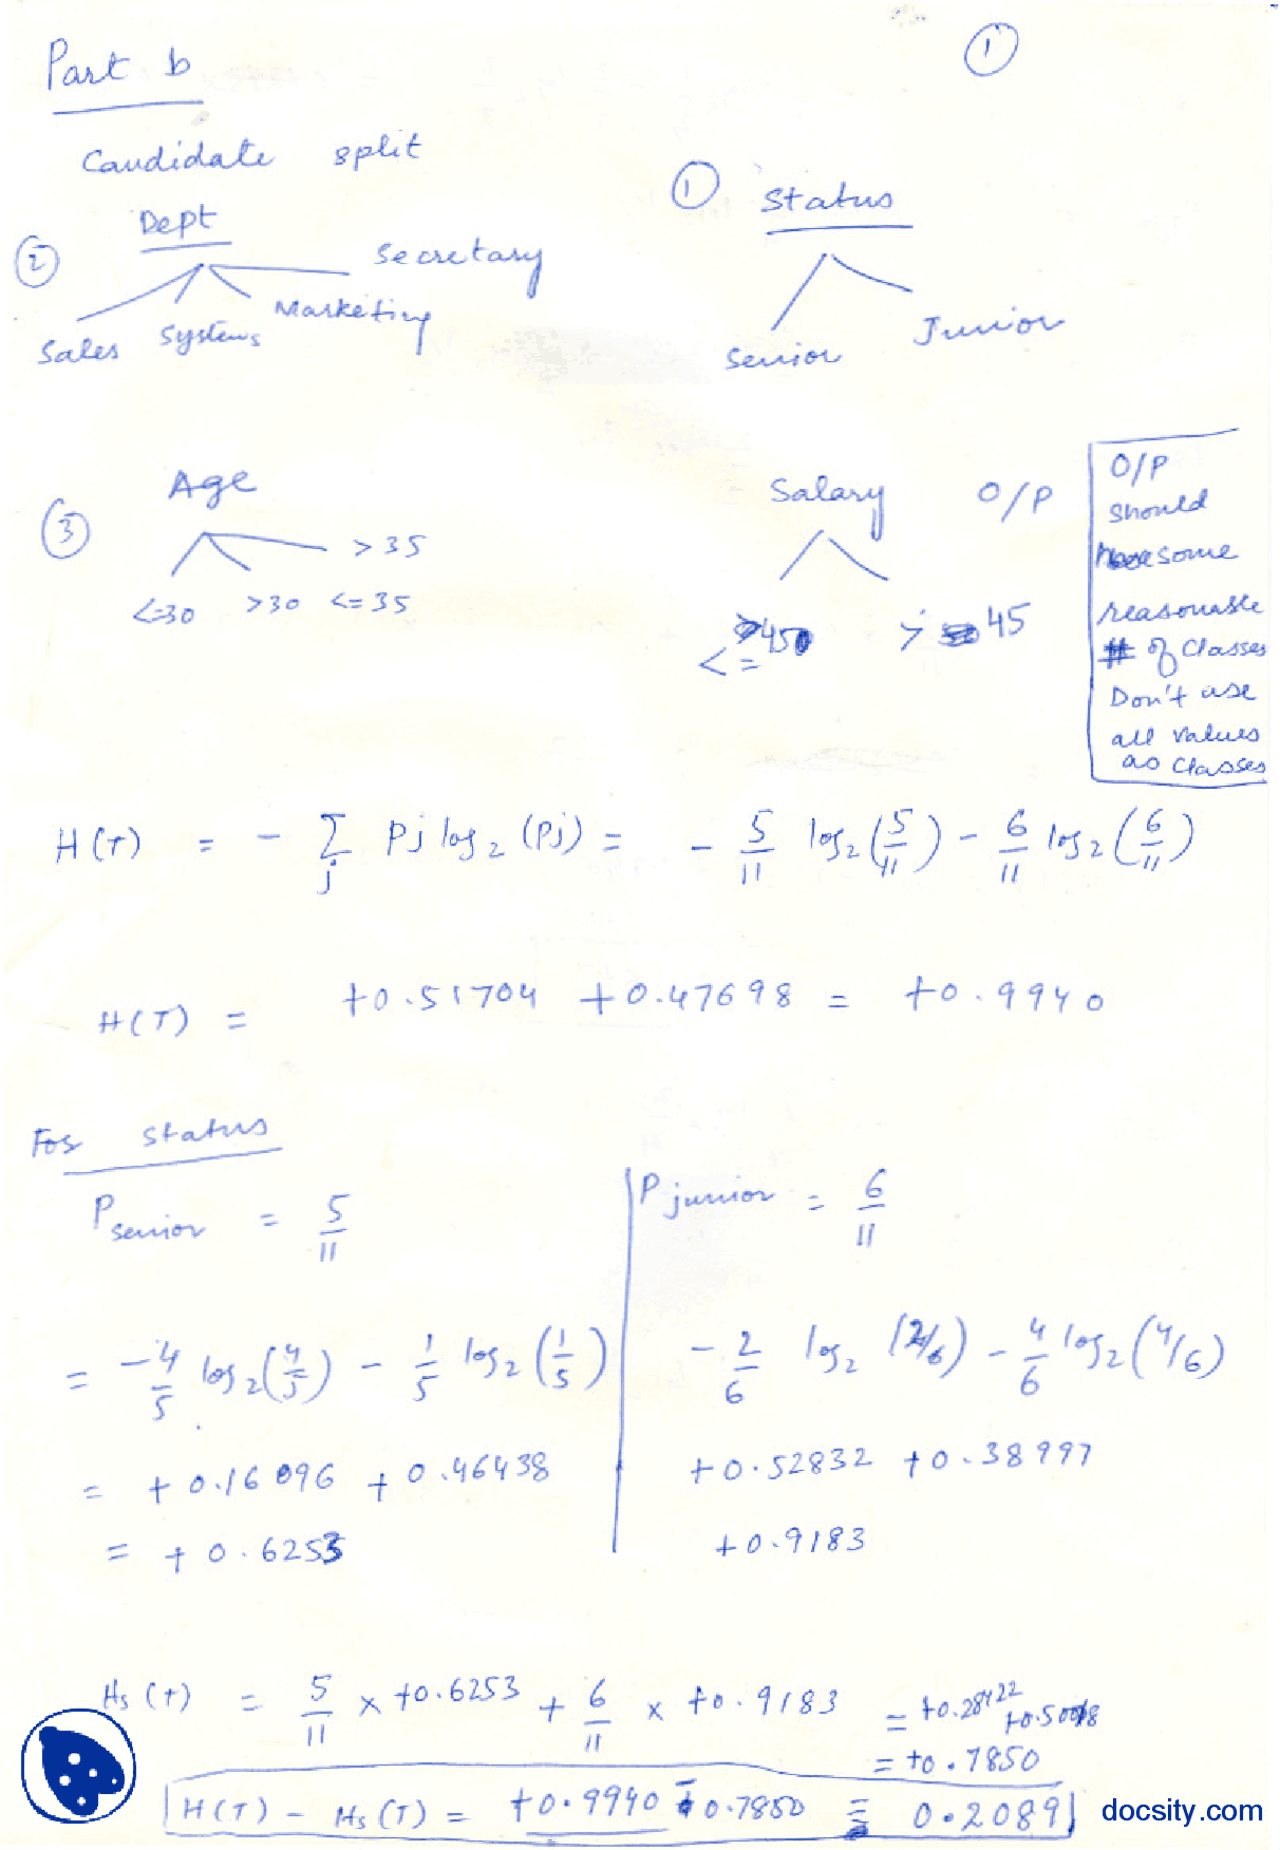 Part b
1
Candidate split
Dept
2
Secretary
Marketing
Systems
Sales
1 Status
Senior
Junior
Age
3
> 35
<=30 >30 <= 35
Salary O/P
<= 45
> 45
O/P
Should
have some
reasonable
# of Classes
Don't use
all values
as classes
H(T) = - Σj Pj log₂ (Pj) = - 5/11 log₂(5/11) - 6/11 log₂(6/11)
H(T) = +0.51704 +0.47698 = +0.9940
For status
P senior = 5/11
= -4/5 log₂(4/5) - 1/5 log₂(1/5)
= +0.16096 + 0.46438
= + 0.6253
P junior = 6/11
- 2/6 log₂ (2/6) - 4/6 log₂(4/6)
+0.52832 +0.38997
+0.9183
Hs (T) = 5/11 x +0.6253 + 6/11 x +0.9183 = +0.28422
= +0.7850
H(T) - Hs (T) = +0.9940 - 0.7850 = 0.2089
docsity.com